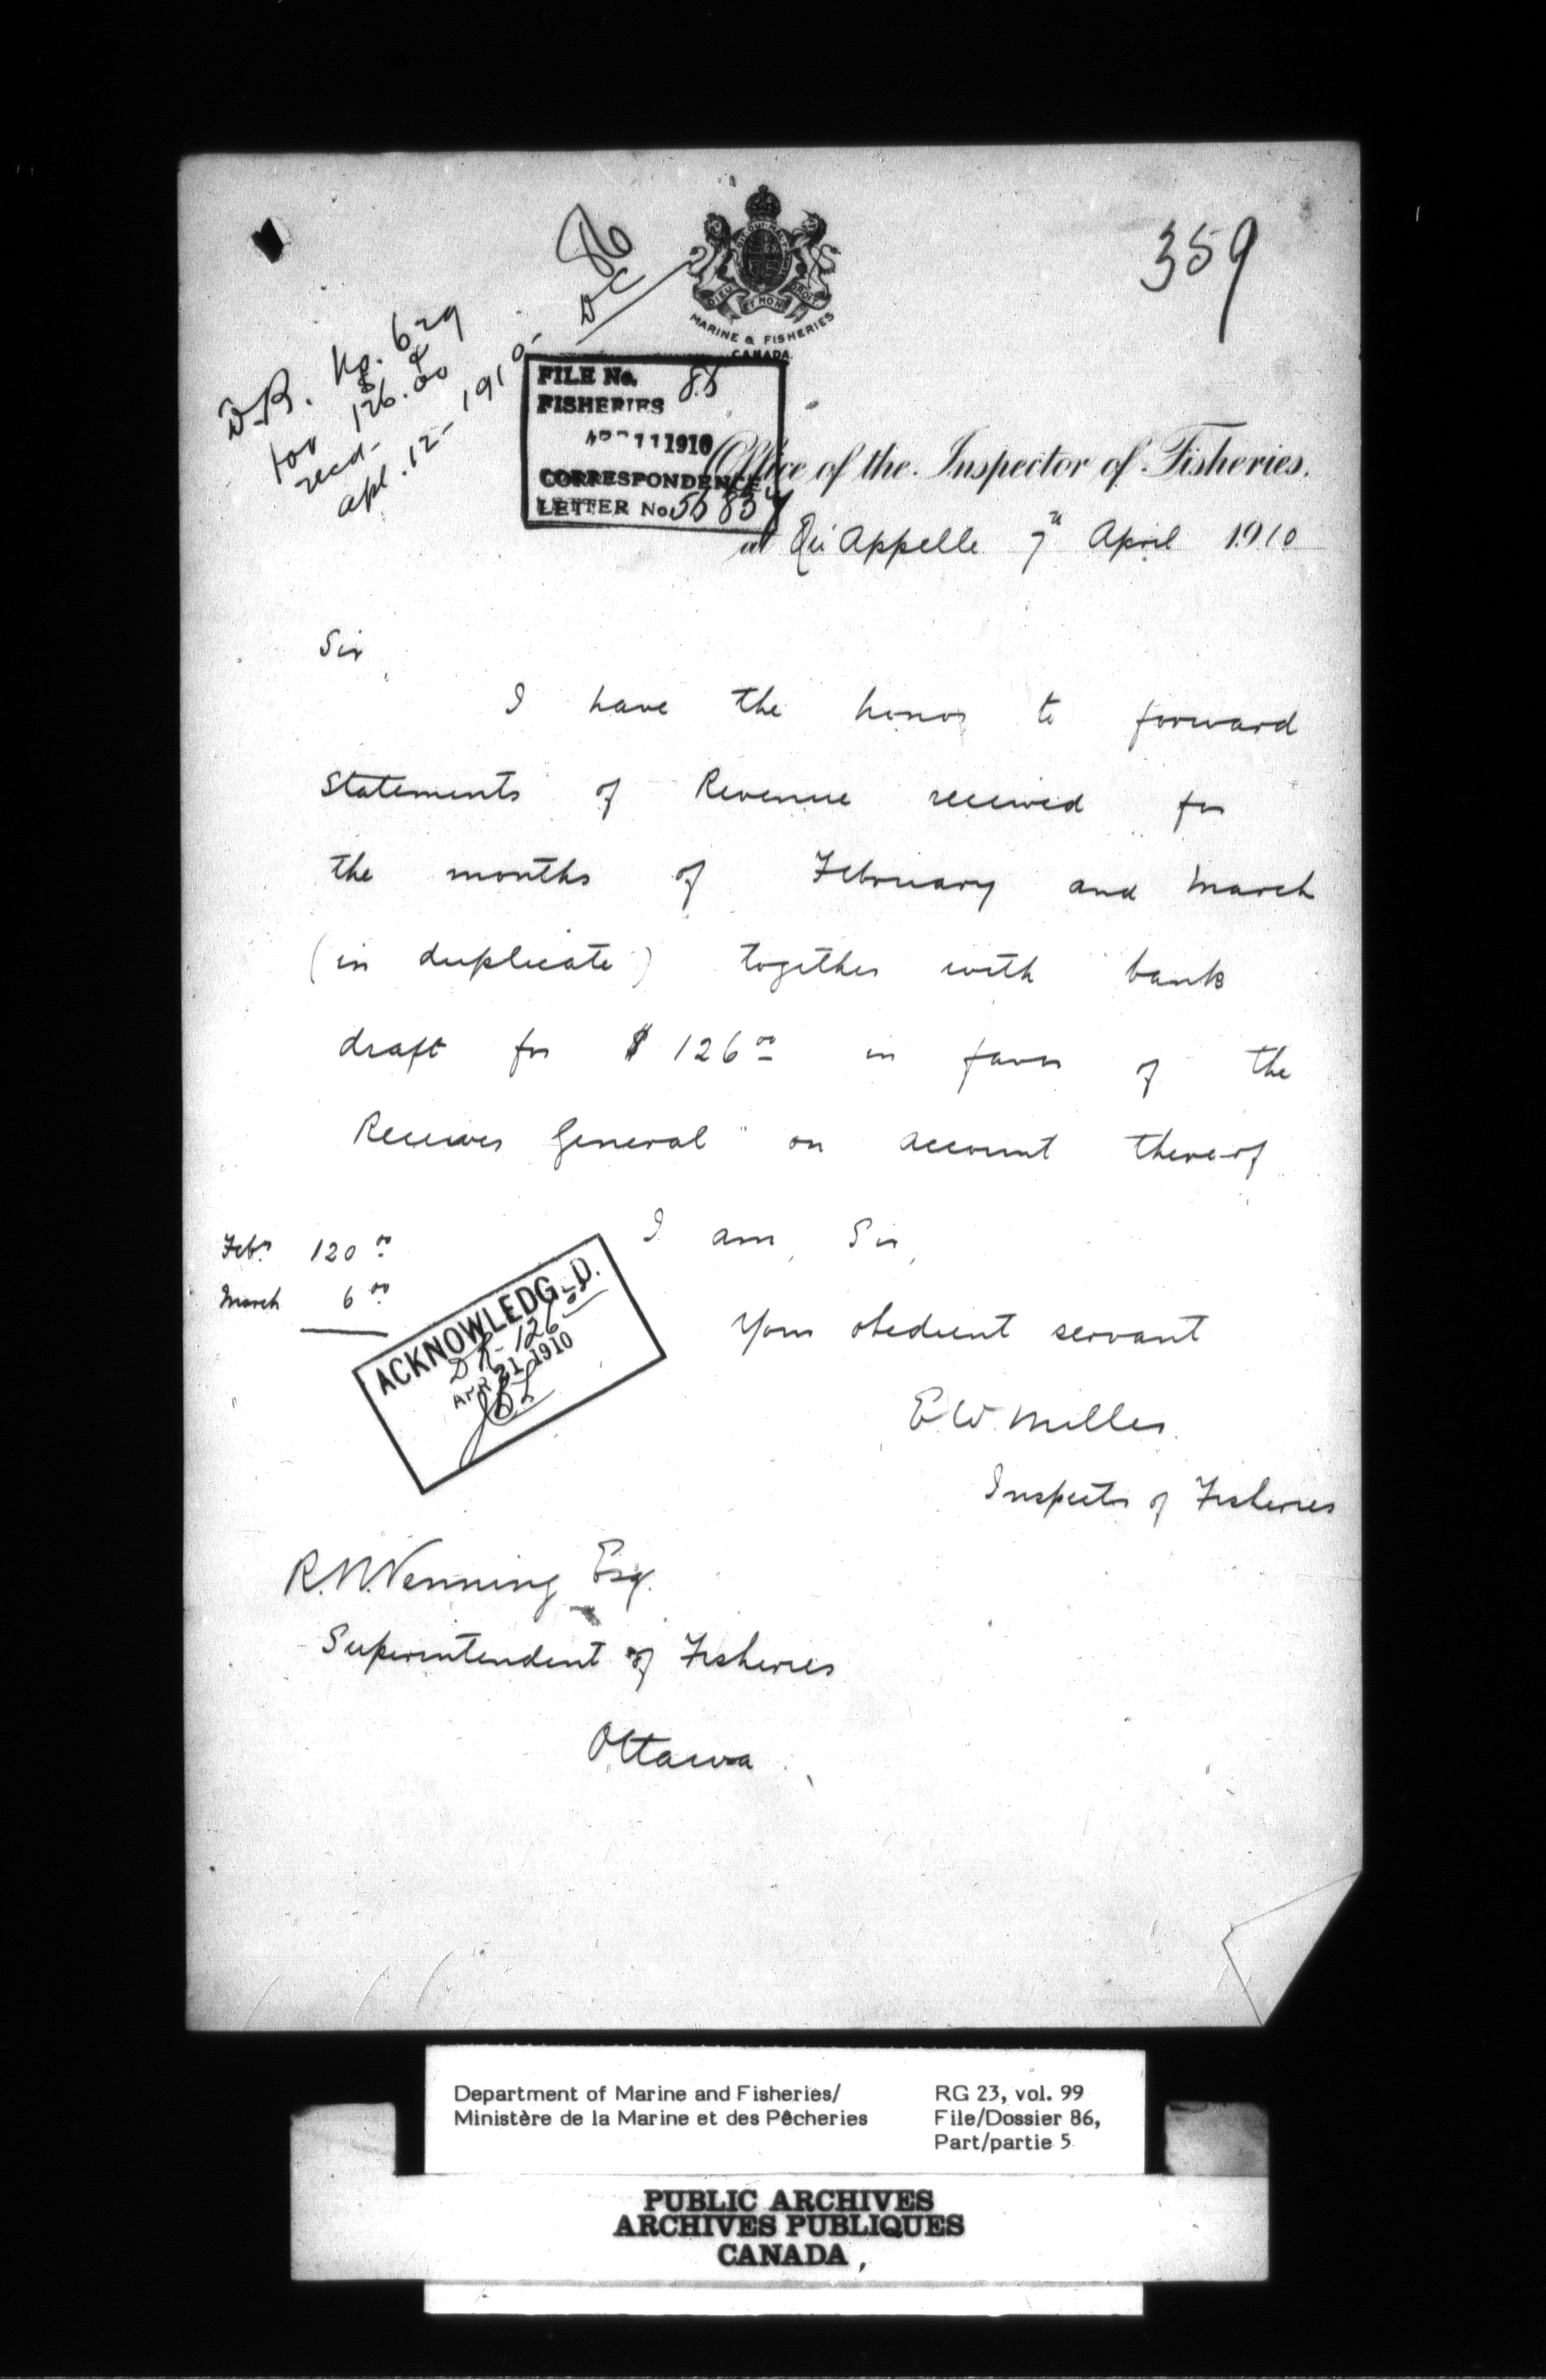 359
86
DC
DIEU ET MON DROIT
MARINE & FISHERIES
CANADA
D.R. No. 629
for $126.00
recd.
apl. 12 - 1910
FILE No. 86
FISHERIES
APR 11 1910
CORRESPONDENCE
LETTER No.
Office of the Inspector of Fisheries.
at Qu'Appelle 7th April 1910
Sir,
I have the honor to forward
Statements of Revenue received for
the months of February and March
(in duplicate) together with bank
draft for $126 00 in favor of the
Receiver General on account thereof
I am, Sir,
Feby 120 00
March 6 00
ACKNOWLEDGED.
DR - 126 00
APR 21 1910
Your obedient servant
E.W. Miller
Inspector of Fisheries
R.N. Venning Esq.
Superintendent of Fisheries
Ottawa
Department of Marine and Fisheries/
Ministère de la Marine et des Pêcheries
RG 23, vol. 99
File/Dossier 86,
Part/partie 5
PUBLIC ARCHIVES
ARCHIVES PUBLIQUES
CANADA